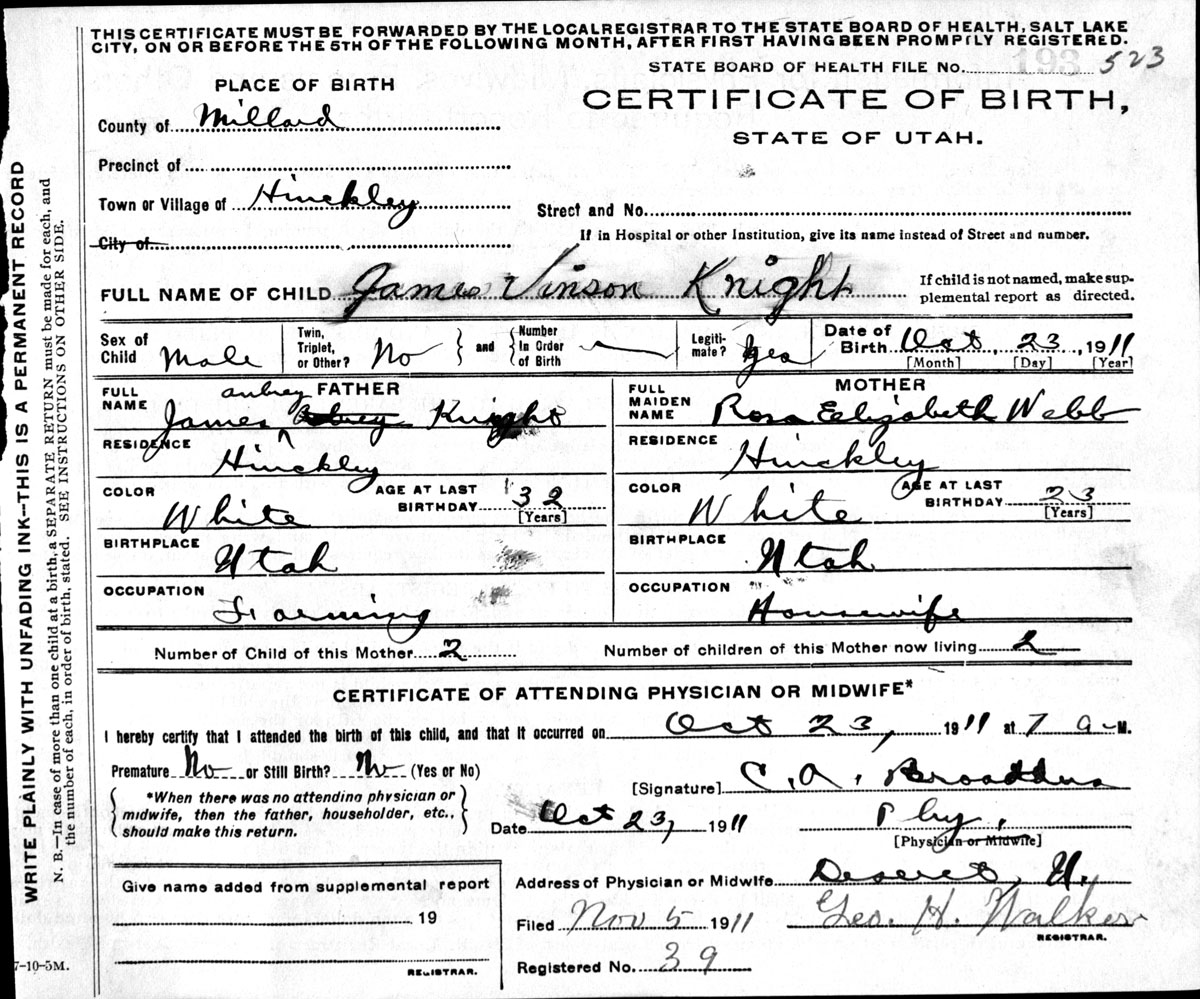 THIS CERTIFICATE MUST BE FORWARDED BY THE LOCAL REGISTRAR TO THE STATE BOARD OF HEALTH, SALT LAKE
CITY, ON OR BEFORE THE 5TH OF THE FOLLOWING MONTH, AFTER FIRST HAVING BEEN PROMPTLY REGISTERED.
STATE BOARD OF HEALTH FILE No. 193 523
PLACE OF BIRTH
CERTIFICATE OF BIRTH,
STATE OF UTAH.
County of Millard
Precinct of
Town or Village of Hinckley
Street and No.
City of
If in Hospital or other Institution, give its name instead of Street and number.
FULL NAME OF CHILD James Vinson Knight
If child is not named, make sup-
plemental report as directed.
Sex of Child Male
Twin, Triplet, or Other? No
and
Number In Order of Birth
Legiti-mate? Yes
Date of Birth Oct 23, 1911
[Month] [Day] [Year]
FATHER
FULL NAME James Aubrey Knight
MOTHER
FULL MAIDEN NAME Rosa Eelizabeth Webb
RESIDENCE Hinckley
RESIDENCE Hinckley
COLOR White
AGE AT LAST BIRTHDAY 32 [Years]
COLOR White
AGE AT LAST BIRTHDAY 23 [Years]
BIRTHPLACE Utah
BIRTHPLACE Utah
OCCUPATION Farming
OCCUPATION Housewife
Number of Child of this Mother 2
Number of children of this Mother now living 2
CERTIFICATE OF ATTENDING PHYSICIAN OR MIDWIFE*
I hereby certify that I attended the birth of this child, and that it occurred on Oct 23, 1911 at 7 a M.
Premature No or Still Birth? No (Yes or No)
*When there was no attending physician or
midwife, then the father, householder, etc.,
should make this return.
[Signature] C. A. Broaddus
Date Oct 23, 1911
Phy.
[Physician or Midwife]
Give name added from supplemental report
19
REGISTRAR.
Address of Physician or Midwife Deseret, U.
Filed Nov 5 1911
Geo. H. Walker
REGISTRAR.
Registered No. 39
7-10-5M.
WRITE PLAINLY WITH UNFADING INK--THIS IS A PERMANENT RECORD
N. B.--In case of more than one child at a birth, a SEPARATE RETURN must be made for each, and
the number of each, in order of birth, stated. SEE INSTRUCTIONS ON OTHER SIDE.